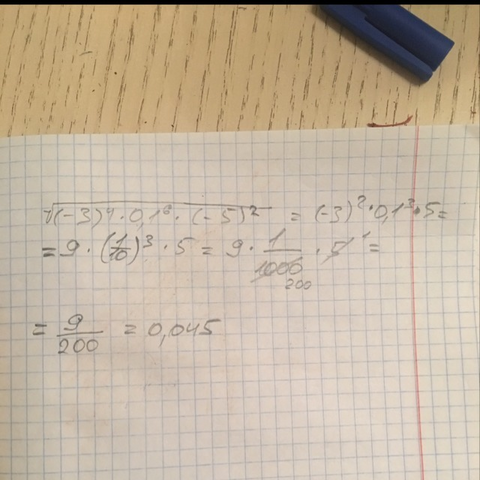 √(-3)⁴·0,1⁶·(-5)² = (-3)²·0,1³·5=
=9·(1/10)³·5=9·1/1000 200·5 1=
=9/200=0,045